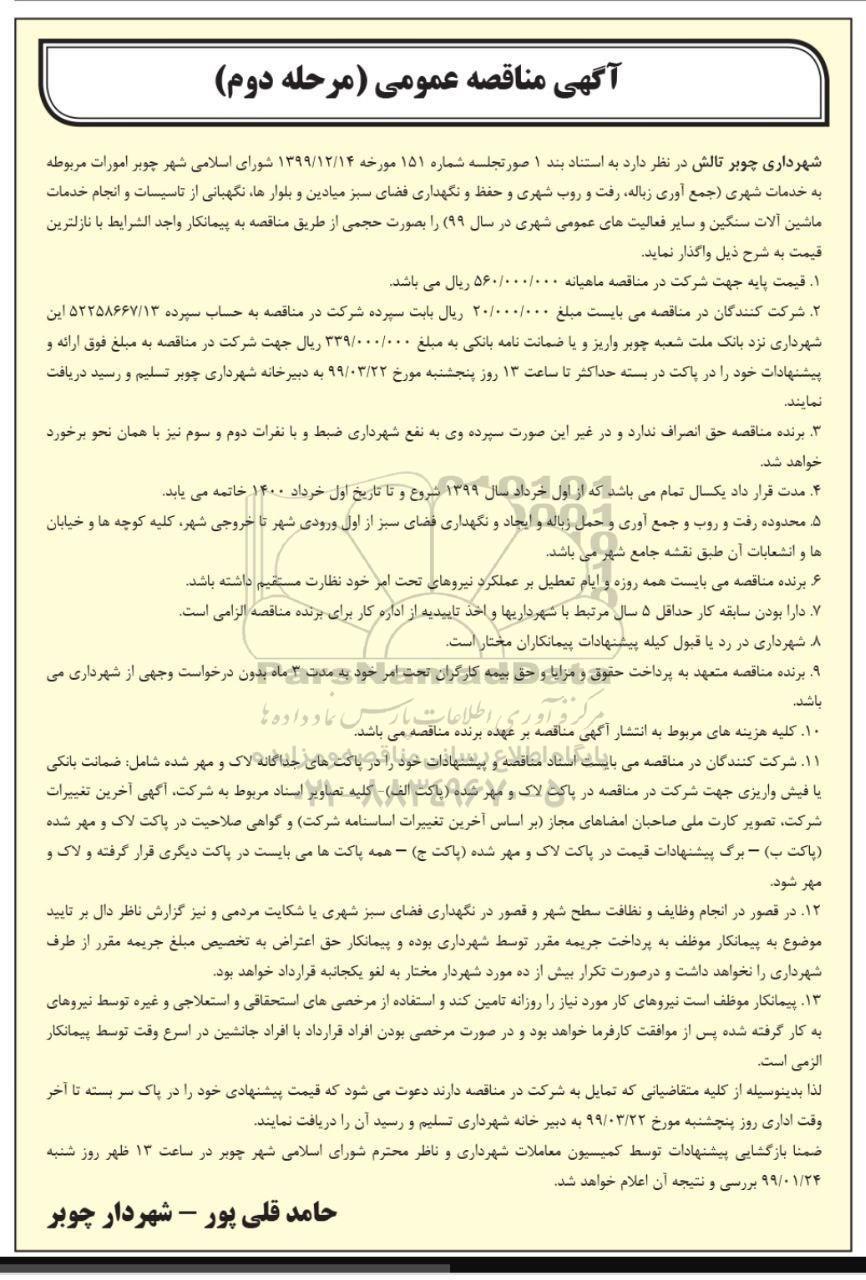 آگهی مناقصه عمومی (مرحله دوم)
شهرداری چوبر تالش در نظر دارد به استناد بند ۱ صورتجلسه شماره ۱۵۱ مورخه ۱۳۹۹/۱۲/۱۴ شورای اسلامی شهر چوبر امورات مربوطه
به خدمات شهری (جمع آوری زباله، رفت و روب شهری و حفظ و نگهداری فضای سبز میادین و بلوار ها، نگهبانی از تاسیسات و انجام خدمات
ماشین آلات سنگین و سایر فعالیت های عمومی شهری در سال ۹۹) را بصورت حجمی از طریق مناقصه به پیمانکار واجد الشرایط با نازلترین
قیمت به شرح ذیل واگذار نماید.
۱. قیمت پایه جهت شرکت در مناقصه ماهیانه ۵۶۰/۰۰۰/۰۰۰ ریال می باشد.
۲. شرکت کنندگان در مناقصه می بایست مبلغ ۲۰/۰۰۰/۰۰۰ ریال بابت سپرده شرکت در مناقصه به حساب سپرده ۵۲۲۵۸۶۶۷/۱۳ این
شهرداری نزد بانک ملت شعبه چوبر واریز و یا ضمانت نامه بانکی به مبلغ ۳۳۹/۰۰۰/۰۰۰ ریال جهت شرکت در مناقصه به مبلغ فوق ارائه و
پیشنهادات خود را در پاکت در بسته حداکثر تا ساعت ۱۳ روز پنجشنبه مورخ ۹۹/۰۳/۲۲ به دبیرخانه شهرداری چوبر تسلیم و رسید دریافت
نمایند.
۳. برنده مناقصه حق انصراف ندارد و در غیر این صورت سپرده وی به نفع شهرداری ضبط و با نفرات دوم و سوم نیز با همان نحو برخورد
خواهد شد.
۴. مدت قرار داد یکسال تمام می باشد که از اول خرداد سال ۱۳۹۹ شروع و تا تاریخ اول خرداد ۱۴۰۰ خاتمه می یابد.
۵. محدوده رفت و روب و جمع آوری و حمل زباله و ایجاد و نگهداری فضای سبز از اول ورودی شهر تا خروجی شهر، کلیه کوچه ها و خیابان
ها و انشعابات آن طبق نقشه جامع شهر می باشد.
۶. برنده مناقصه می بایست همه روزه و ایام تعطیل بر عملکرد نیروهای تحت امر خود نظارت مستقیم داشته باشد.
۷. دارا بودن سابقه کار حداقل ۵ سال مرتبط با شهرداریها و اخذ تاییدیه از اداره کار برای برنده مناقصه الزامی است.
۸. شهرداری در رد یا قبول کیله پیشنهادات پیمانکاران مختار است.
۹. برنده مناقصه متعهد به پرداخت حقوق و مزایا و حق بیمه کارگران تحت امر خود به مدت ۳ ماه بدون درخواست وجهی از شهرداری می
باشد.
۱۰. کلیه هزینه های مربوط به انتشار آگهی مناقصه بر عهده برنده مناقصه می باشد.
۱۱. شرکت کنندگان در مناقصه می بایست اسناد مناقصه و پیشنهادات خود را در پاکت های جداگانه لاک و مهر شده شامل: ضمانت بانکی
یا فیش واریزی جهت شرکت در مناقصه در پاکت لاک و مهر شده (پاکت الف)- کلیه تصاویر اسناد مربوط به شرکت، آگهی آخرین تغییرات
شرکت، تصویر کارت ملی صاحبان امضاهای مجاز (بر اساس آخرین تغییرات اساسنامه شرکت) و گواهی صلاحیت در پاکت لاک و مهر شده
(پاکت ب) – برگ پیشنهادات قیمت در پاکت لاک و مهر شده (پاکت ج) – همه پاکت ها می بایست در پاکت دیگری قرار گرفته و لاک و
مهر شود.
۱۲. در قصور در انجام وظایف و نظافت سطح شهر و قصور در نگهداری فضای سبز شهری یا شکایت مردمی و نیز گزارش ناظر دال بر تایید
موضوع به پیمانکار موظف به پرداخت جریمه مقرر توسط شهرداری بوده و پیمانکار حق اعتراض به تخصیص مبلغ جریمه مقرر از طرف
شهرداری را نخواهد داشت و درصورت تکرار بیش از ده مورد شهردار مختار به لغو یکجانبه قرارداد خواهد بود.
۱۳. پیمانکار موظف است نیروهای کار مورد نیاز را روزانه تامین کند و استفاده از مرخصی های استحقاقی و استعلاجی و غیره توسط نیروهای
به کار گرفته شده پس از موافقت کارفرما خواهد بود و در صورت مرخصی بودن افراد قرارداد با افراد جانشین در اسرع وقت توسط پیمانکار
الزمی است.
لذا بدینوسیله از کلیه متقاضیانی که تمایل به شرکت در مناقصه دارند دعوت می شود که قیمت پیشنهادی خود را در پاک سر بسته تا آخر
وقت اداری روز پنچشنبه مورخ ۹۹/۰۳/۲۲ به دبیر خانه شهرداری تسلیم و رسید آن را دریافت نمایند.
ضمنا بازگشایی پیشنهادات توسط کمیسیون معاملات شهرداری و ناظر محترم شورای اسلامی شهر چوبر در ساعت ۱۳ ظهر روز شنبه
۹۹/۰۱/۲۴ بررسی و نتیجه آن اعلام خواهد شد.
حامد قلی پور – شهردار چوبر
ParsNamadData
مرکز فرآوری اطلاعات پارس نماد داده ها
پایگاه اطلاع رسانی مناقصه و مزایده
۰۲۱-۸۸۳۴۹۶۷۰-۵